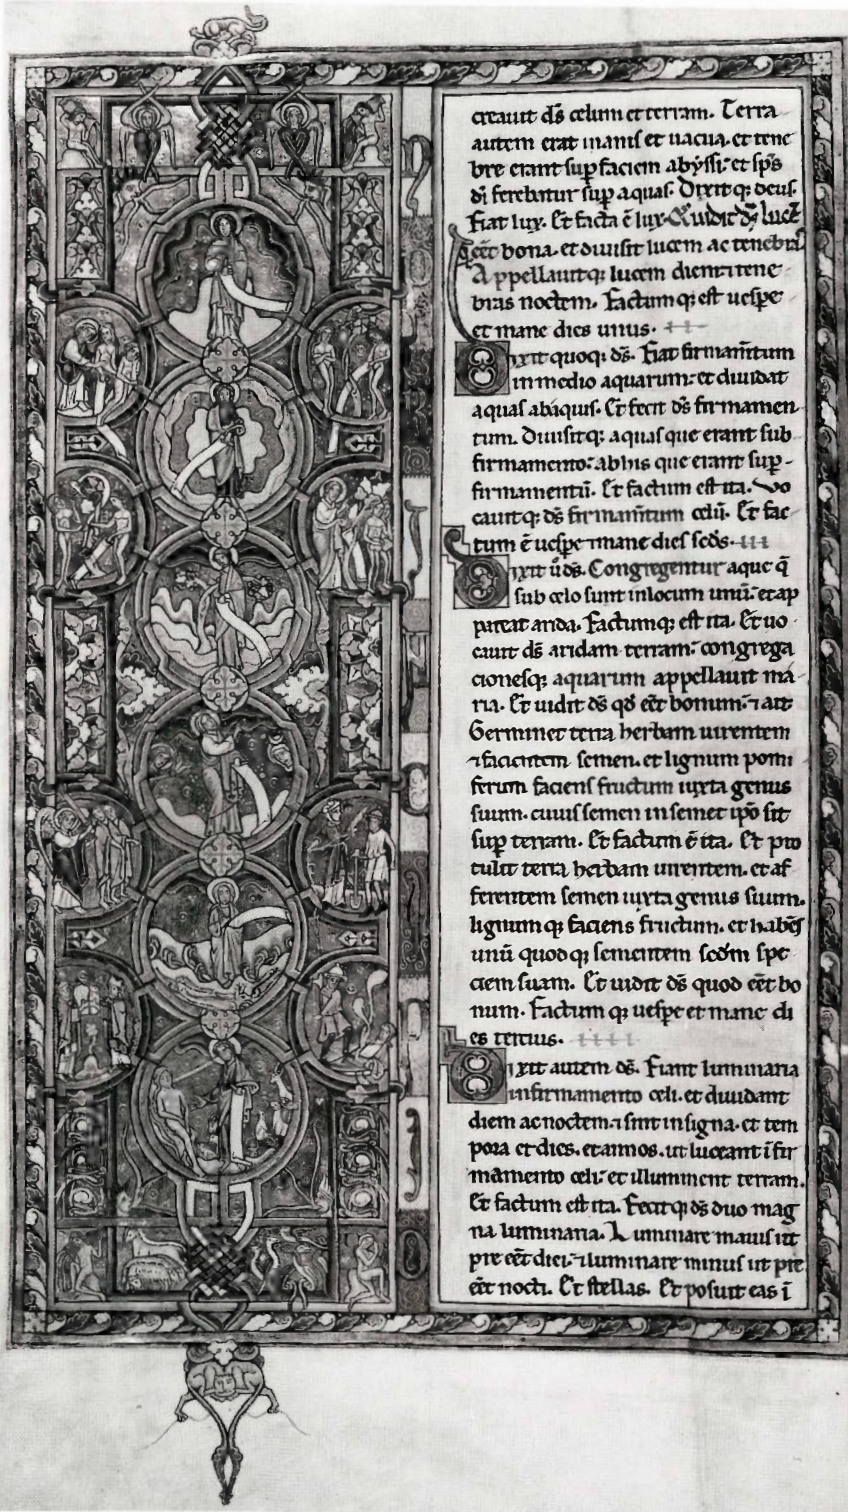 creauit ds celum et terram. Terra
autem erat inanis et uacua. et tene
bre erant sup faciem abyssi. et sps
di ferebatur sup aquas. Dixitq; deus.
Fiat lux. Et facta ē lux. Et uidit ds lucē
qd eēt bona. et diuisit lucem ac tenebras.
Appellauitq; lucem diem ⁊ tene
bras noctem. Factumq; est uespe
et mane dies unus. II
Dixit quoq; ds. Fiat firmam̄tum
in medio aquarum. et diuidat
aquas abaquis. Et fecit ds firmamen
tum. Diuisitq; aquas que erant sub
firmamento. ab his que erant sup
firmamentū. Et factum est ita. Vo
cauitq; ds firmam̄tum celū. Et fac
tum ē uespe ⁊ mane dies scds. III
Dixit ū ds. Congregentur aque q̄
sub celo sunt in locum unū. et ap
pareat arida. Factumq; est ita. Et uo
cauit ds aridam terram. congrega
cionesq; aquarum appellauit ma
ria. Et uidit ds qd eēt bonum. ⁊ ait
Germinet terra herbam uirentem
⁊ facientem semen. et lignum pomi
ferum faciens fructum iuxta genus
suum. cuius semen in semet ipō sit
sup terram. Et factum ē ita. Et pro
tulit terra herbam uirentem. et af
ferentem semen iuxta genus suum.
lignumq; faciens fructum. et habēs
unū quodq; sementem scdm spe
ciem suam. Et uidit ds quod eēt bo
num. Factumq; uespe et mane di
es tercius. IIII
Dixit autem ds. Fiant luminaria
in firmamento celi. et diuidant
diem ac noctem. ⁊ sint in signa. et tem
pora et dies. et annos. ut luceant ī fir
mamento celi. et illuminent terram.
Et factum est ita. Fecitq; ds duo mag
na luminaria. Luminare maius ut
pre eēt diei. ⁊ luminare minus ut pre
eēt nocti. Et stellas. Et posuit eas ī